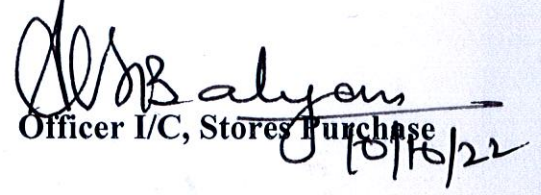 Balyan
Officer I/C, Stores Purchase
10/10/22